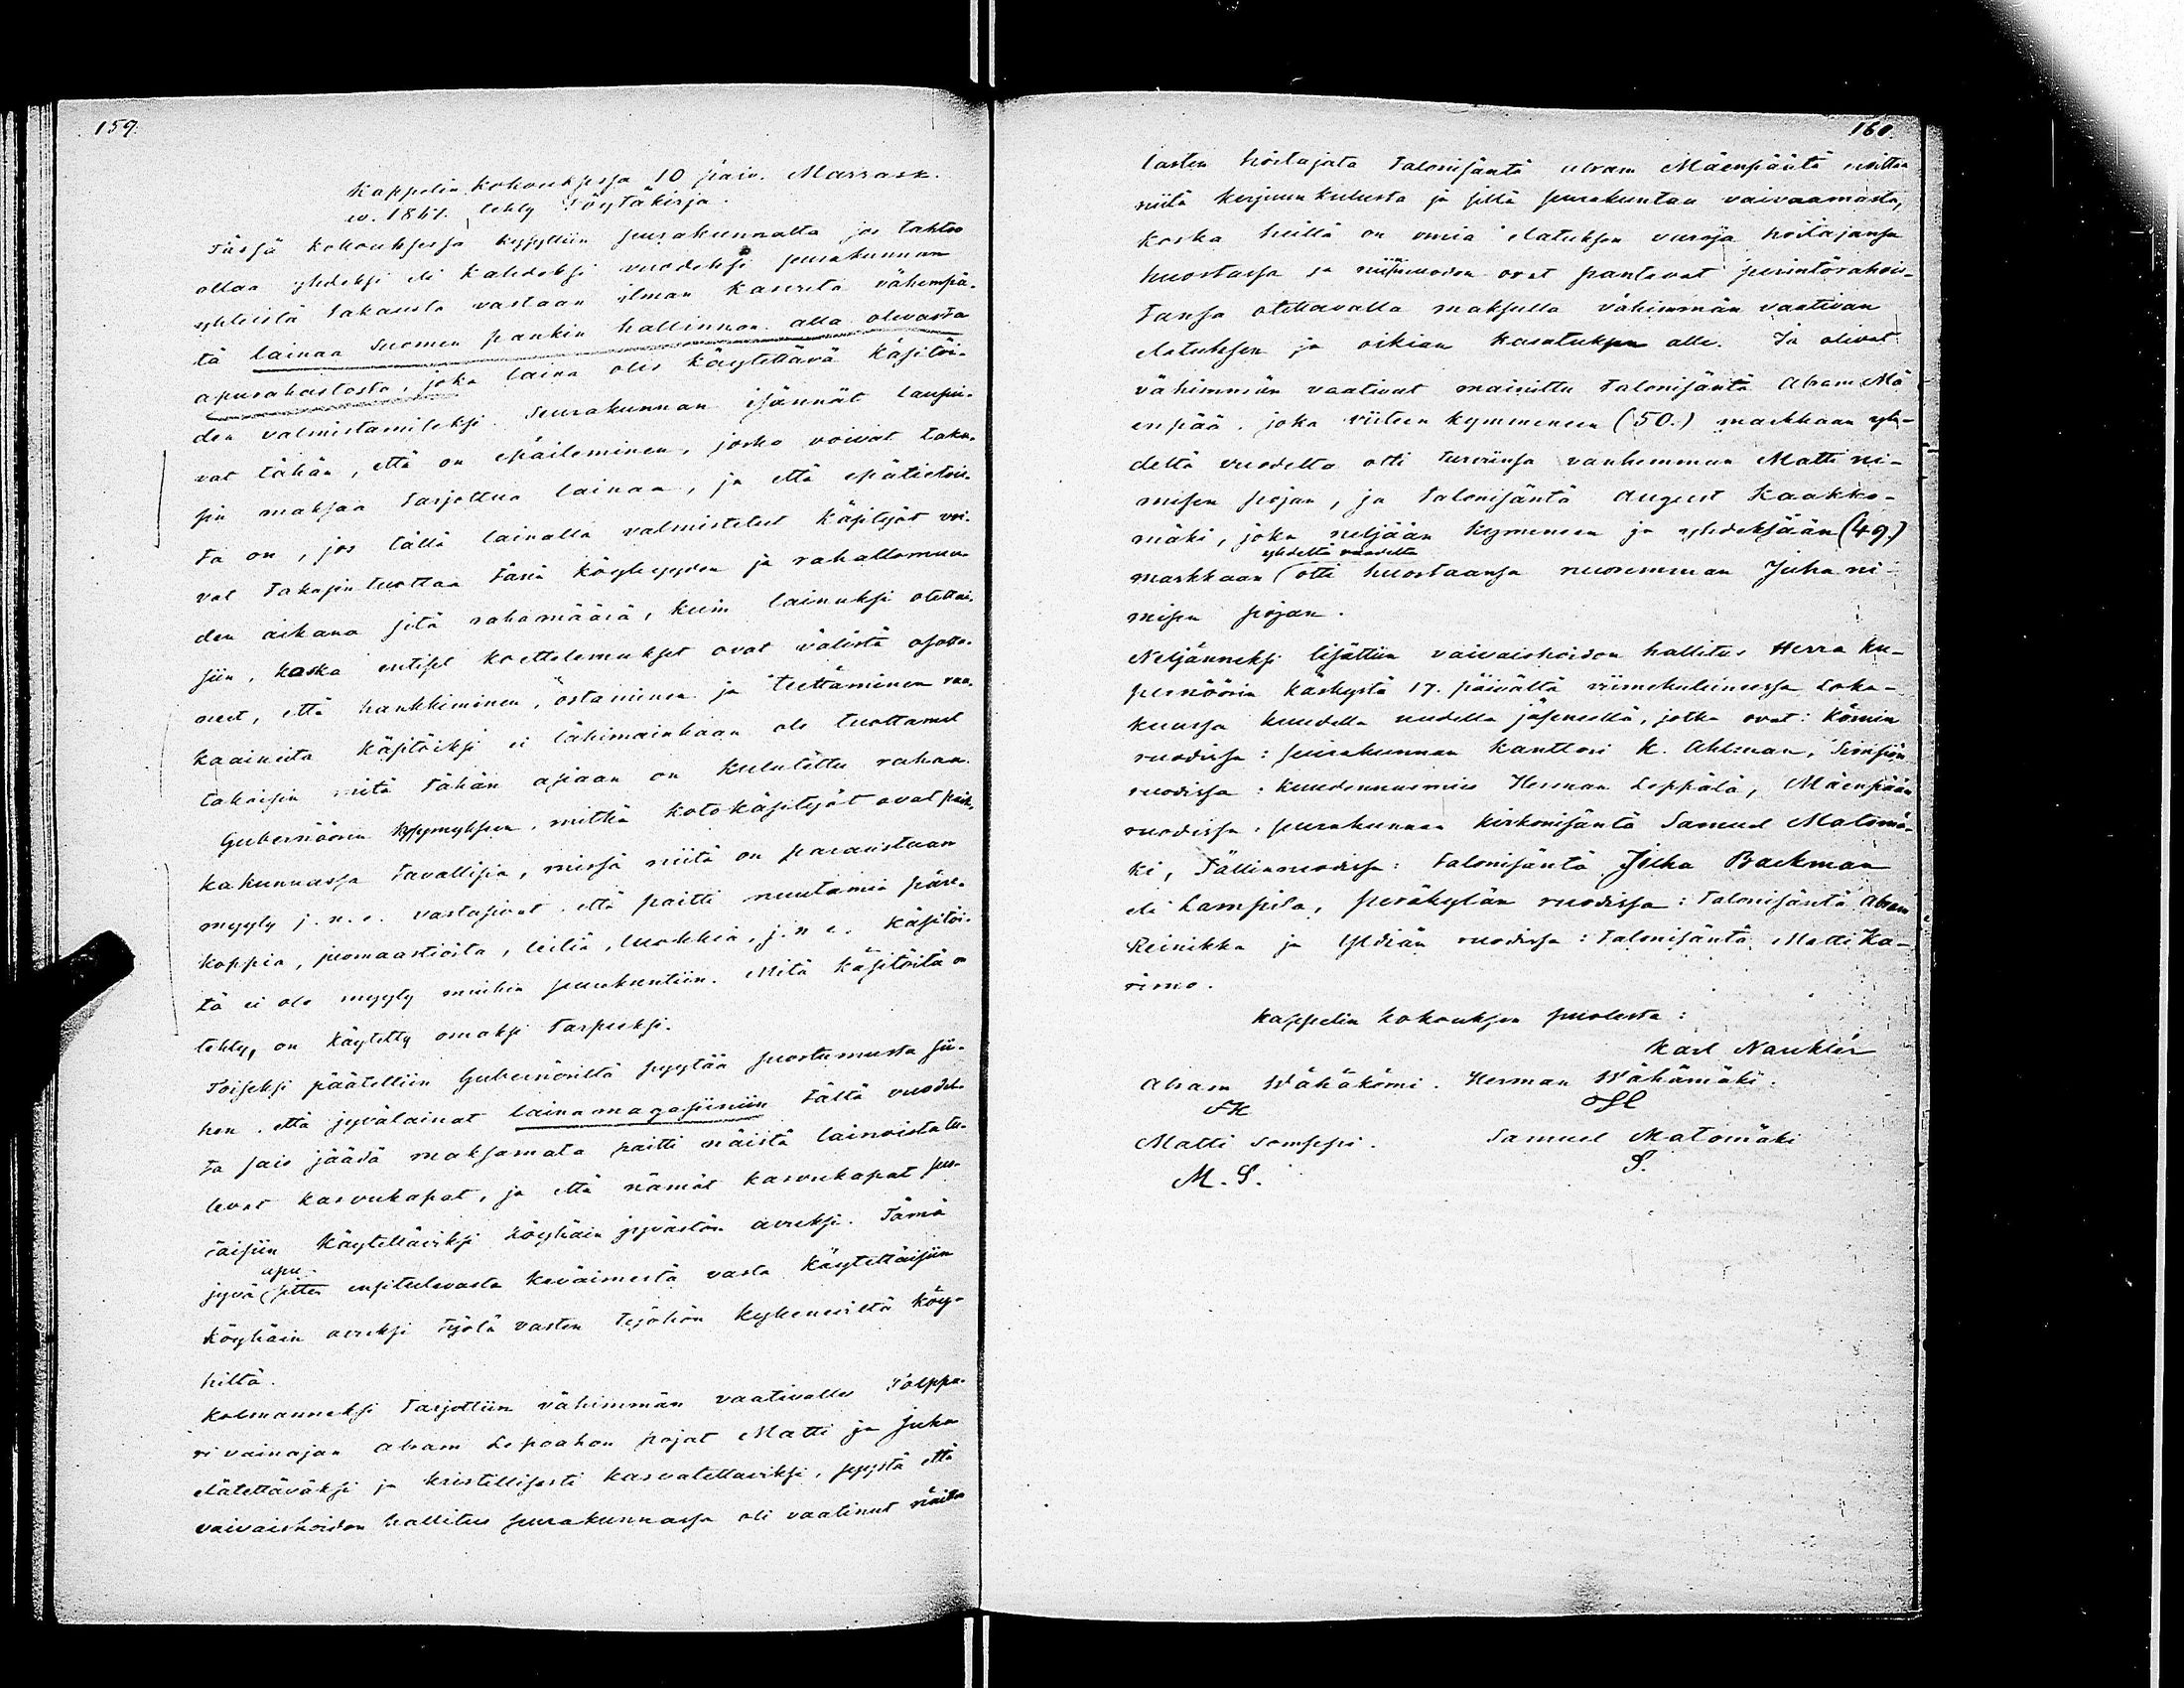 159.
Kappelin kokouksessa 10 päiv. Marrask.
w. 1867. tehty Pöytäkirja.
Tässä kokouksessa kysyttiin seurakunnalta jos tahtoo
ottaa yhdeksi eli kahdeksi vuodeksi seurakunnan
yhteistä takausta vastaan ilman kasvuta vähempä-
tä lainaa Suomen pankin hallinnon alla olevasta
apurahastosta, joka laina olis käytettävä käsitöi-
den valmistamiseksi. Seurakunnan isännät lausui-
vat tähän, että on epäileminen, josko voivat taka-
sin maksaa tarjottua lainaa, ja että epätietois-
ta on, jos tällä lainalla valmistetut käsityöt voi-
vat takasin tuottaa tänä köyhyyden ja rahattomuu-
den aikana sitä rahamäärä, kuin lainaksi otettai-
siin, koska entiset koettelemukset ovat välistä osotta-
neet, että hankkiminen, ostaminen ja teettäminen raa-
kaaineita käsitöiksi ei lähimainkaan ole tuottanut
takaisin mitä tähän asiaan on kulutettu rahaa.
Gubernöörin kysymyksen, mitkä kotokäsityöt ovat paik-
kakunnassa tavallisia, missä niitä on paraastaan
myyty j. n. e. vastasivat että paitti muutamia päre-
koppia, juomaastioita, leiliä, luokkia, j. n. e. käsitöi-
tä ei ole myyty muihin seurakuntiin. Mitä käsitöitä on
tehty, on käytetty omaksi tarpeeksi.
Toiseksi päätettiin Gubernöriltä pyytää suostumusta sii-
hen, että jyvälainat lainamagasiiniin tältä vuodel-
ta sais jäädä maksamata paitti näistä lainoista tu-
levat kasvukapat, ja että nämät kasvukapat suo-
taisiin käytettäviksi köyhäin jyvästön avuksi. Tämä
apu
jyvä sitte ensitulevasta keväimestä vasta käytettäisiin
köyhäin avuksi työtä vasten työhön kykeneviltä köy-
hiltä.
Kolmanneksi tarjottiin vähimmän vaativalle Torppa-
ri vainajan Abram Lepoahon pojat Matti ja Juha
elätettäväksi ja kristillisesti kasvatettaviksi, syystä että
vaivaishoidon hallitus seurakunnassa oli vaatinut näitten
160.
lasten hoitajata Talonisäntä Abram Mäenpäätä ottaa
niitä kerjuun kulusta ja sillä seurakuntaa vaivaamasta,
koska heillä on omia elatuksen varoja hoitajansa
huostassa ja niin muodon ovat pantavat perintörahois-
tansa otettavalla maksulla vähimmän vaativan
elatuksen ja oikian kasvatuksen alle. Ja olivat
vähimmän vaativat mainittu Talonisäntä Abram Mä-
enpää, joka viiteen kymmeneen (50.) markkaan yh-
deltä vuodelta otti turviinsa vanhemman Matti ni-
misen pojan, ja Talonisäntä August Kaakko-
mäki, joka neljään kymeneen ja yhdeksään (49.)
yhdeltä vuodelta
markkaan otti huostaansa nuoremman Juha ni-
misen pojan.
Neljänneksi lisättiin vaivaishoidon hallitus Herra Ku-
pernöörin käskystä 17. päivältä viimekuluneessa Loka-
kuussa kuudella uudella jäsenellä, jotka ovat: Kömin
ruodissa: seurakunnan kanttori K. Ahlman, Simsiön
ruodissa: kuudennusmies Herman Leppälä, Mäenpään
ruodissa: seurakunnan kirkonisäntä Samuel Matomä-
ki, Tällinruodissa: Talonisäntä Juha Backman
eli Lampila, peräkylän ruodissa: Talonisäntä Abram
Reinikka ja Yldiän ruodissa: Talonisäntä Matti Ka-
rimo.
Kappelin kokouksen puolesta:
Karl Nauklér
Abram Wähäkömi. Herman Wähämäki.
Matti Somppi. Samuel Matomäki
M. S. S.